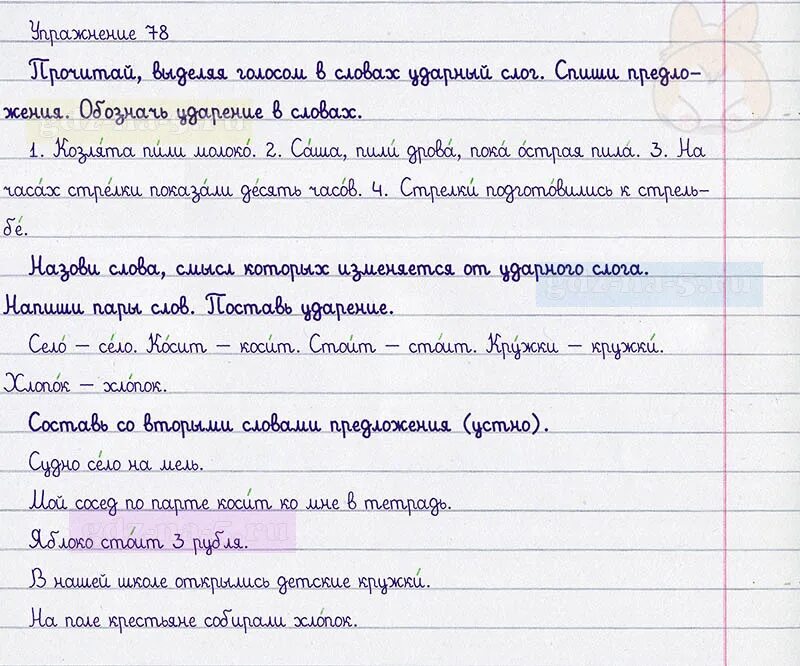 Упражнение 78
Прочитай, выделяя голосом в словах ударный слог. Спиши предло-
жения. Обозначь ударение в словах.
1. Козля́та пи́ли молоко́. 2. Са́ша, пили́ дрова́, пока́ о́страя пила́. 3. На
часа́х стре́лки показа́ли де́сять часо́в. 4. Стрелки́ подгото́вились к стрель-
бе́.
Назови слова, смысл которых изменяется от ударного слога.
Напиши пары слов. Поставь ударение.
Село́ – се́ло. Ко́сит – коси́т. Стои́т – сто́ит. Кру́жки – кружки́.
Хлопо́к – хло́пок.
Составь со вторыми словами предложения (устно).
Судно се́ло на мель.
Мой сосед по парте коси́т ко мне в тетрадь.
Яблоко сто́ит 3 рубля.
В нашей школе открылись детские кружки́.
На поле крестьяне собирали хло́пок.
gdz-na-5.ru
gdz-na-5.ru
gdz-na-5.ru